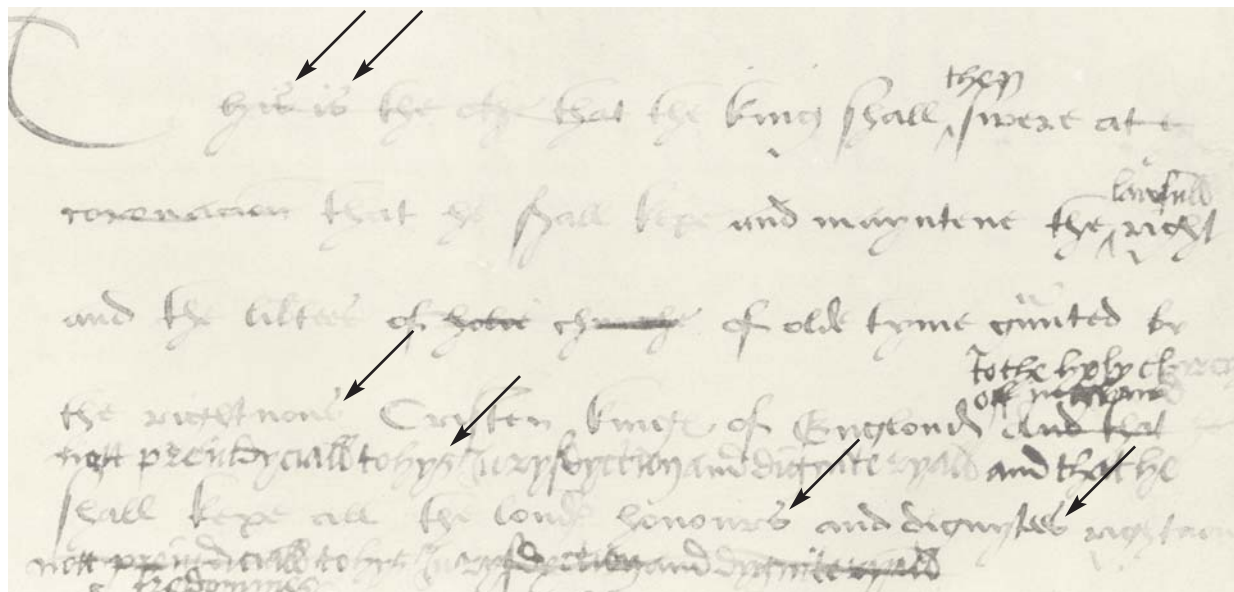 This is the othe that the king shall then swere at ẏ
coronacion that he shall kepe and mayntene the lawfull right
and the libtees of holie churche of olde tyme graunted by
the rightuous Cristen kinges of Englond to the holy chirche off ingland And that
nott preiudyciall to hys Jurysdyction and dignite ryall and that he
shall kepe all the londes honours and dignytees rightuous
nott preiudiciall to hys Jurysdyction and dygnite ryall
fredommes